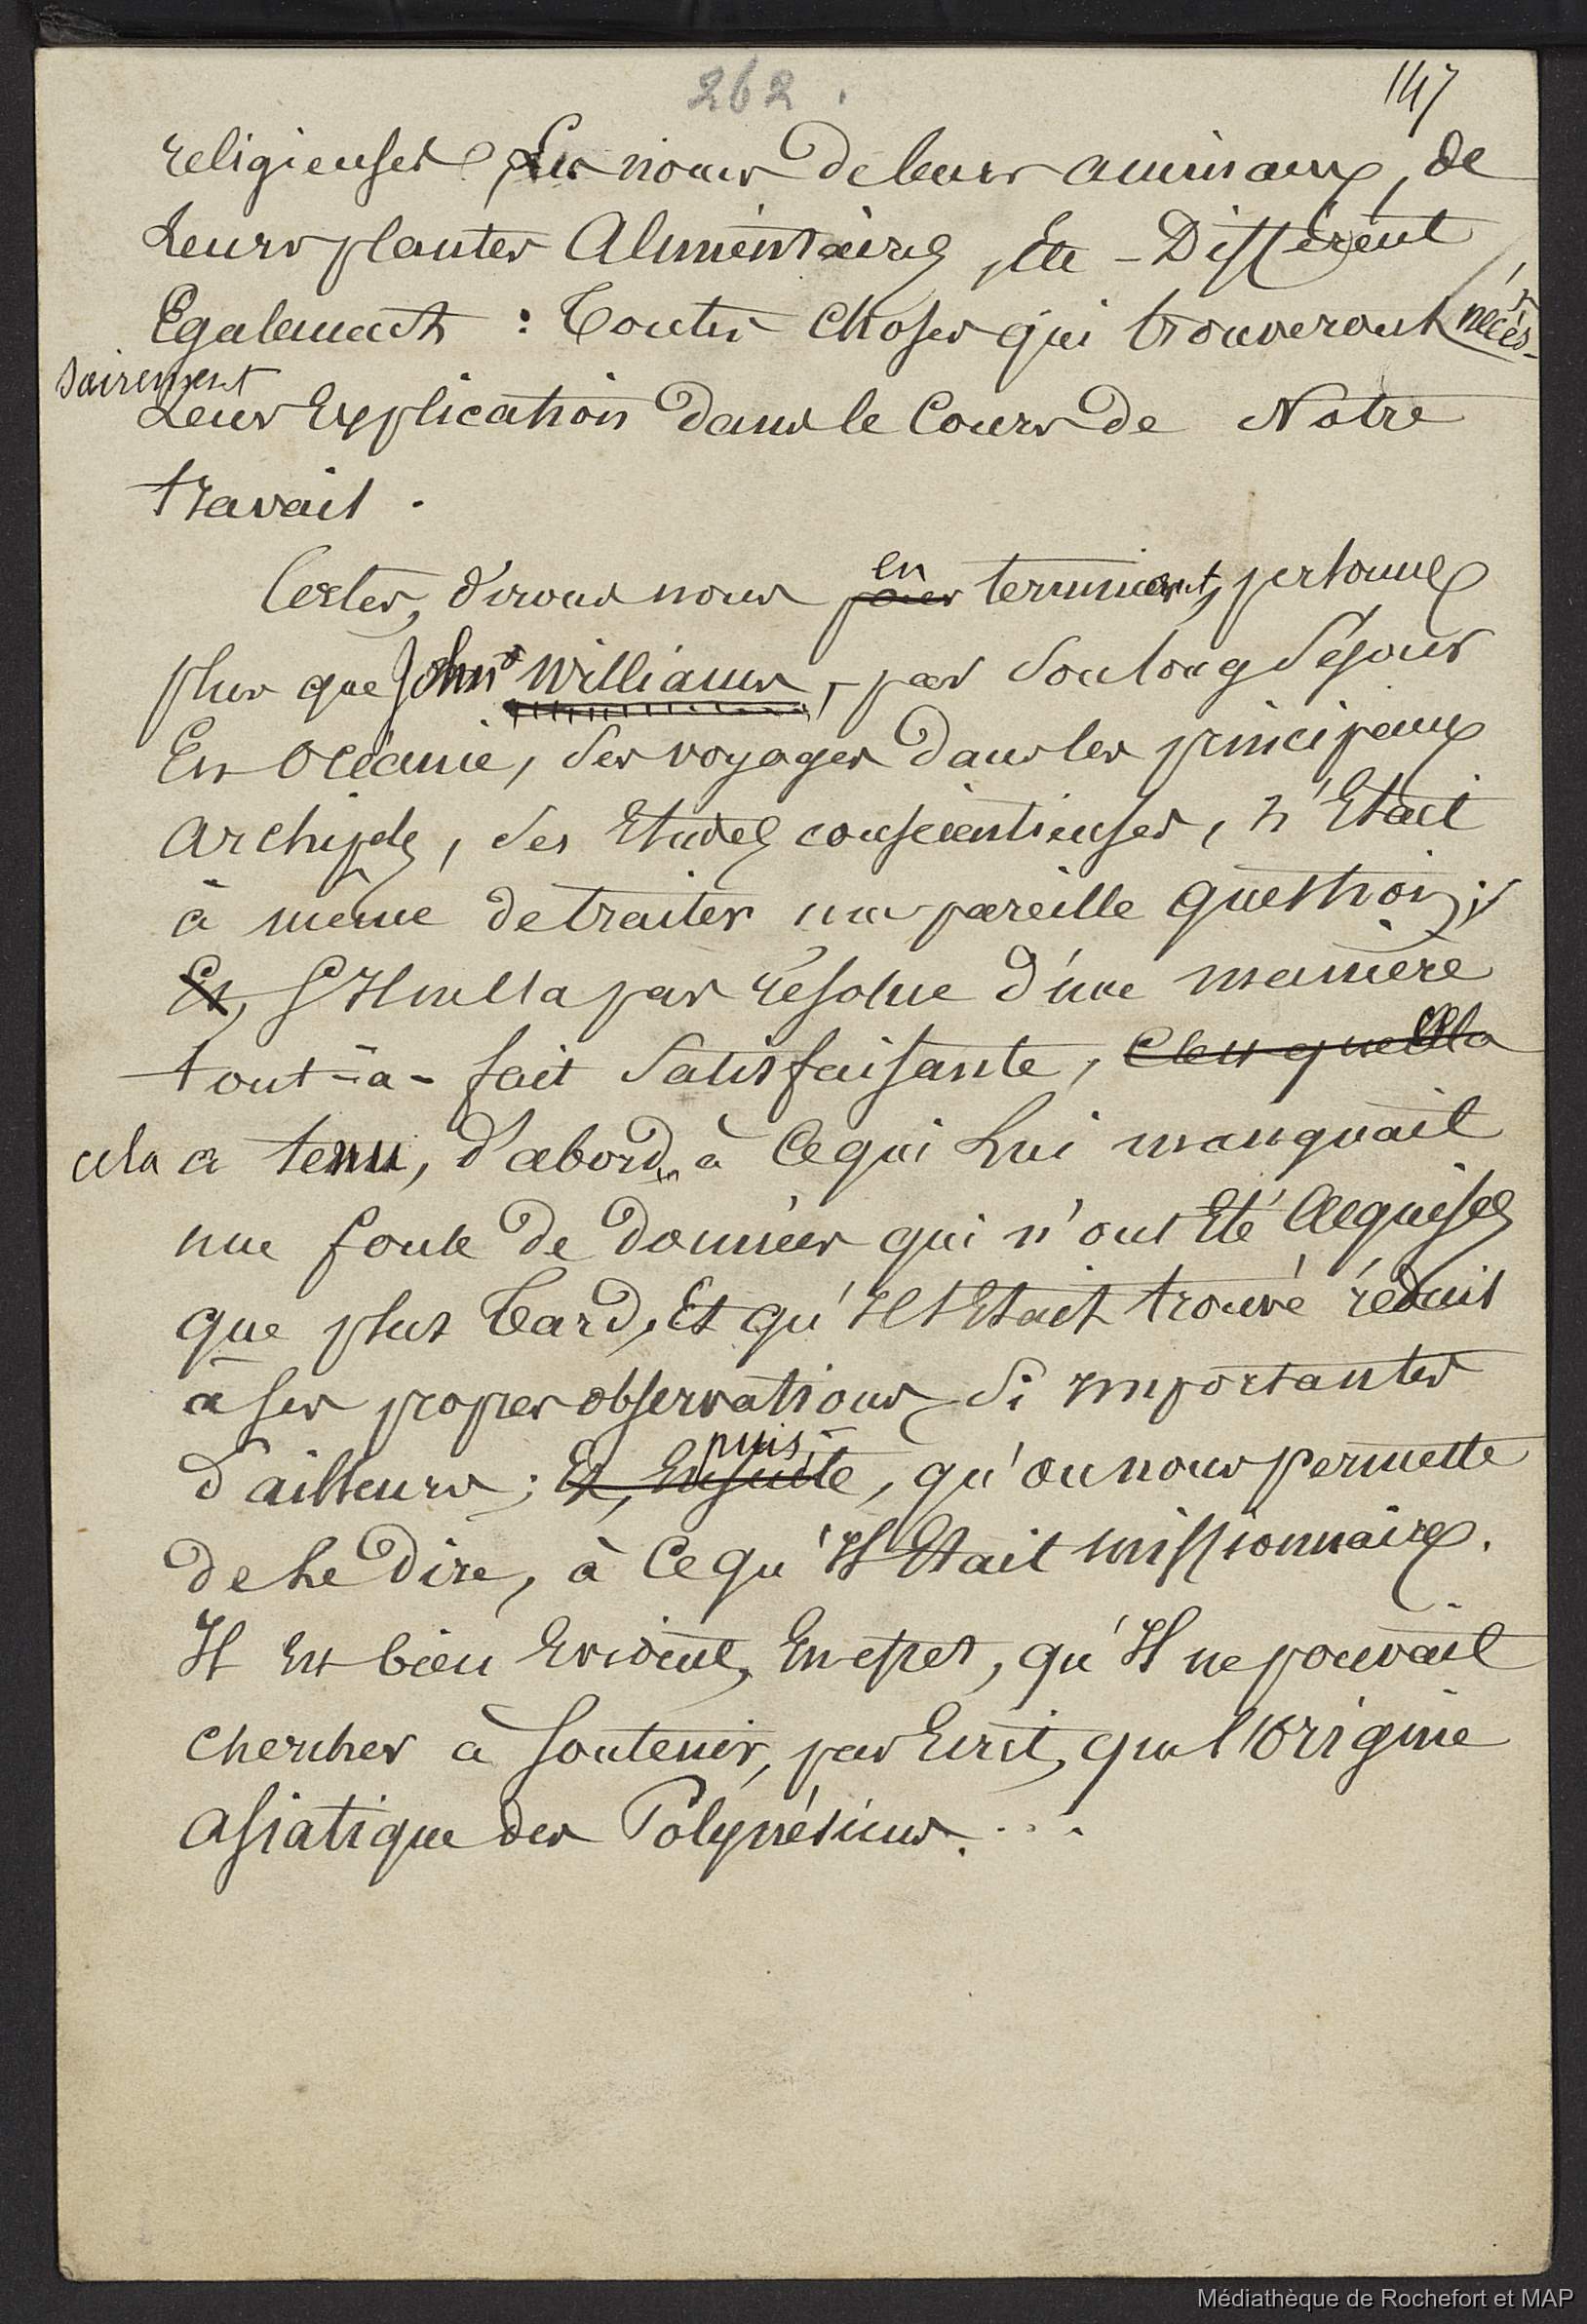 262.
147
religieuses, Les noms de leurs animaux, de
Leurs plantes Alimentaires, Etc – Diffèrent
Egalement : Toutes Choses qui trouveront néces-
sairement
Leur Explication dans le Cours de Notre
travail.
Certes, dirons nous en terminant, personne
plus que John Williams, par Son long Séjour
En Océanie, Ses voyages dans les principaux
Archipels, Ses Etudes consciencieuses, n'Etait
à même de traiter une pareille question;
Et, S'Il ne l'a pas résolue d'une manière
tout-à-fait Satisfaisante, C'est que cela
cela a tenu, d'abord, à Ce qui Lui manquait
une foule de données qui n'ont Eté Acquises
que plus Tard, Et qu'Il s'Etait trouvé réduit
à ses propres observations Si Importantes
puis
d'ailleurs; Et, Ensuite, qu'on nous permette
de Le Dire, à Ce qu'Il Etait missionnaire.
Il Est bien Evident, En effet, qu'Il ne pouvait
chercher à Soutenir, par Ecrit, que l'Origine
Asiatique des Polynésiens....
Médiathèque de Rochefort et MAP